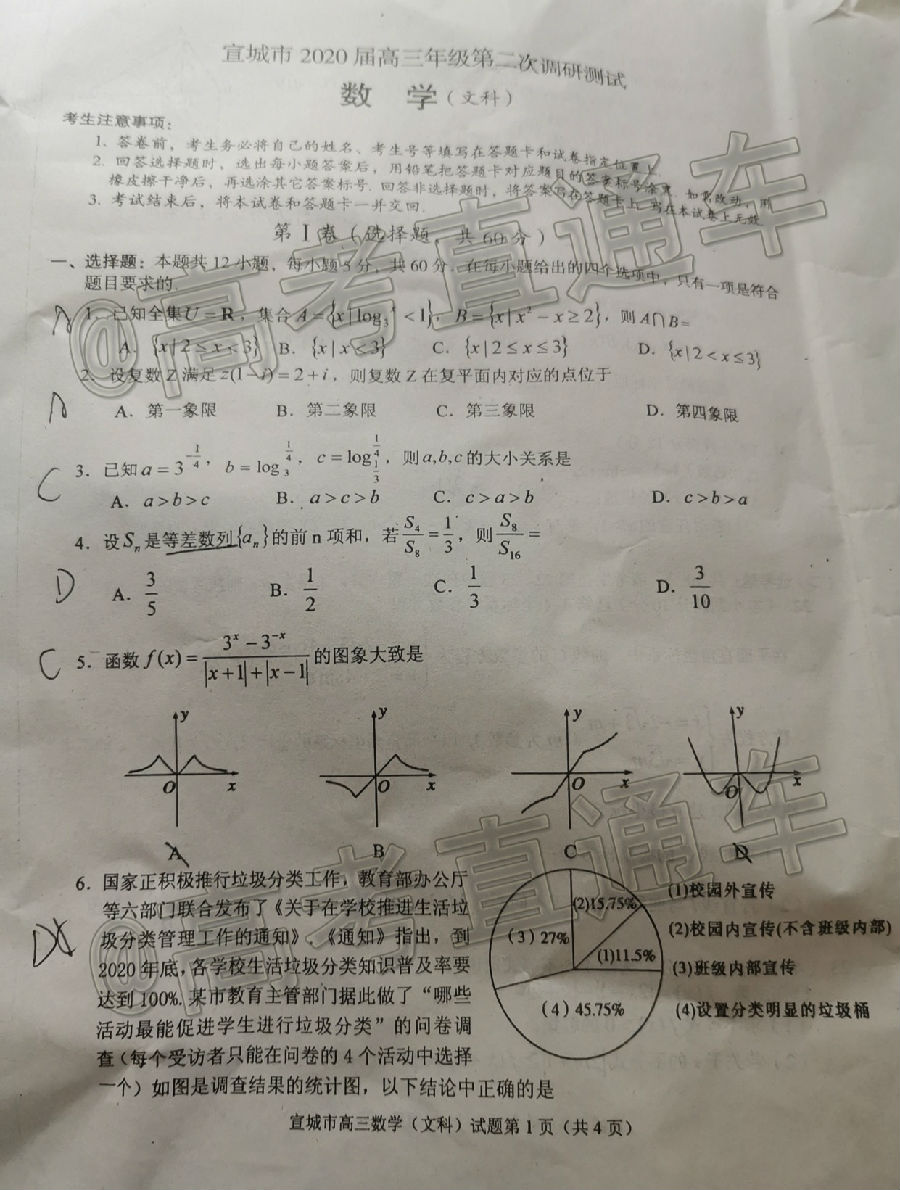 宣城市 2020 届高三年级第二次调研测试
数 学(文科)
考生注意事项:
1. 答卷前,考生务必将自己的姓名、考生号等填写在答题卡和试卷指定位置上.
2. 回答选择题时,选出每小题答案后,用铅笔把答题卡对应题目的答案标号涂黑.如需改动,用
橡皮擦干净后,再选涂其它答案标号.回答非选择题时,将答案写在答题卡上.写在本试卷上无效.
3. 考试结束后,将本试卷和答题卡一并交回.
第 I 卷(选择题 共 60 分)
一、选择题:本题共 12 小题,每小题 5 分,共 60 分.在每小题给出的四个选项中,只有一项是符合
题目要求的.
A
1. 已知全集 U = R,集合 A = {x | log₃ˣ < 1}, B = {x | x² − x ≥ 2},则 A∩B=
A. {x | 2 ≤ x < 3} B. {x | x < 3} C. {x | 2 ≤ x ≤ 3} D. {x | 2 < x ≤ 3}
2. 设复数 Z 满足 z(1−i) = 2 + i,则复数 Z 在复平面内对应的点位于
A
A. 第一象限 B. 第二象限 C. 第三象限 D. 第四象限
C
3. 已知 a = 3^{-1/4}, b = log₃^{1/4}, c = log_{1/3}^{1/4},则 a,b,c 的大小关系是
A. a > b > c B. a > c > b C. c > a > b D. c > b > a
4. 设 Sₙ 是等差数列{aₙ}的前 n 项和,若 S₄/S₈ = 1/3,则 S₈/S₁₆ =
D
A. 3/5 B. 1/2 C. 1/3 D. 3/10
C
5. 函数 f(x) = (3ˣ − 3⁻ˣ)/(|x+1| + |x−1|) 的图象大致是
y y y y
O x O x O x O x
A B C D
6. 国家正积极推行垃圾分类工作,教育部办公厅
等六部门联合发布了《关于在学校推进生活垃
圾分类管理工作的通知》.《通知》指出,到
D
2020 年底,各学校生活垃圾分类知识普及率要
达到 100%.某市教育主管部门据此做了“哪些
活动最能促进学生进行垃圾分类”的问卷调
查(每个受访者只能在问卷的 4 个活动中选择
一个)如图是调查结果的统计图,以下结论中正确的是
(2)15.75%
(3) 27%
(1)11.5%
(4) 45.75%
(1)校园外宣传
(2)校园内宣传(不含班级内部)
(3)班级内部宣传
(4)设置分类明显的垃圾桶
宣城市高三数学(文科)试题第 1 页(共 4 页)
@高考直通车
@高考直通车